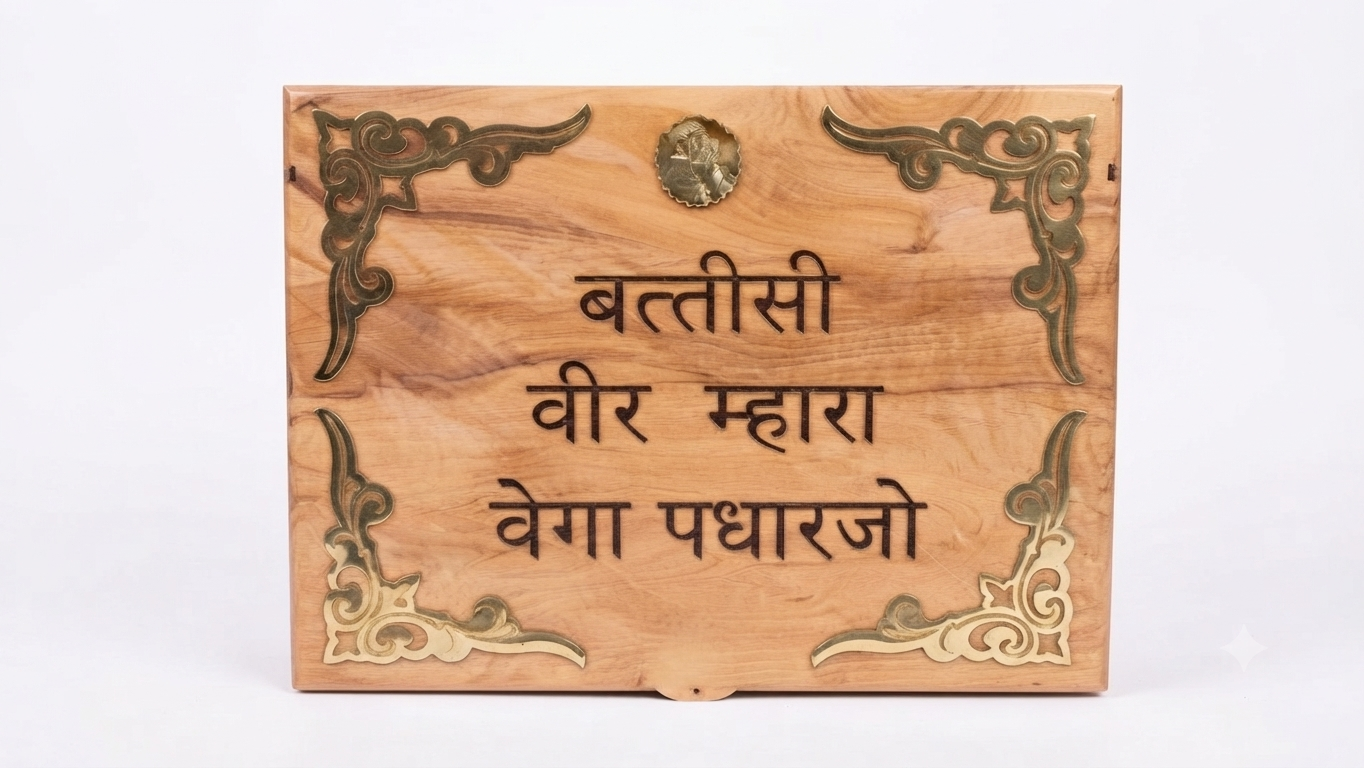 बत्तीसी
वीर म्हारा
वेगा पधारजो